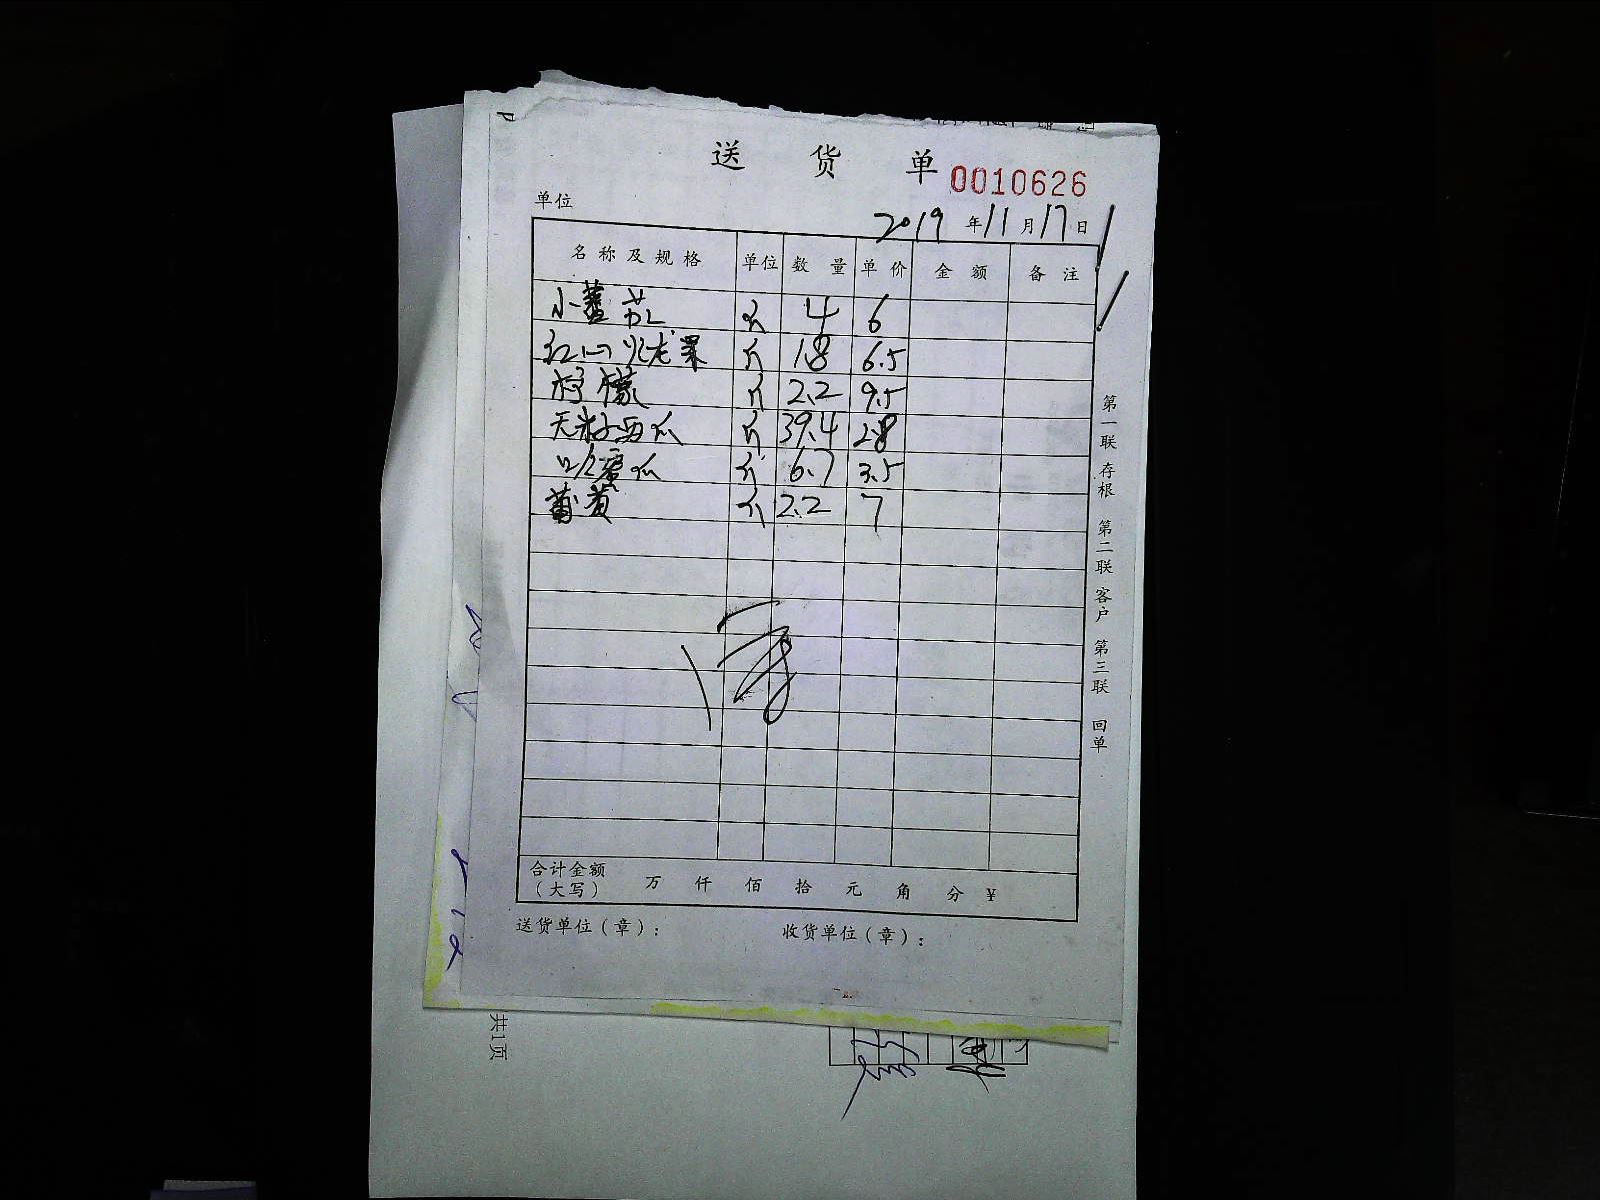 送 货 单 0010626
单位
2019 年 11 月 17 日
名称及规格 单位 数量 单价 金额 备注
小番茄 斤 4 6
红心火龙果 斤 1.8 6.5
柠檬 斤 2.2 9.5
无籽西瓜 斤 39.4 2.8
哈蜜瓜 斤 6.7 3.5
斤 2.2 7
合计金额
(大写) 万 仟 佰 拾 元 角 分 ¥
送货单位(章): 收货单位(章):
第一联 存根 第二联 客户 第三联 回单
共1页